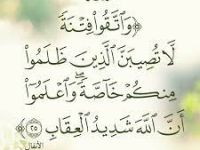 ﴿وَاتَّقُوا فِتْنَةً
لَّا تُصِيبَنَّ الَّذِينَ ظَلَمُوا
مِنكُمْ خَاصَّةً ۖ وَاعْلَمُوا
أَنَّ اللَّهَ شَدِيدُ الْعِقَابِ ﴿٢٥﴾
الأنفال